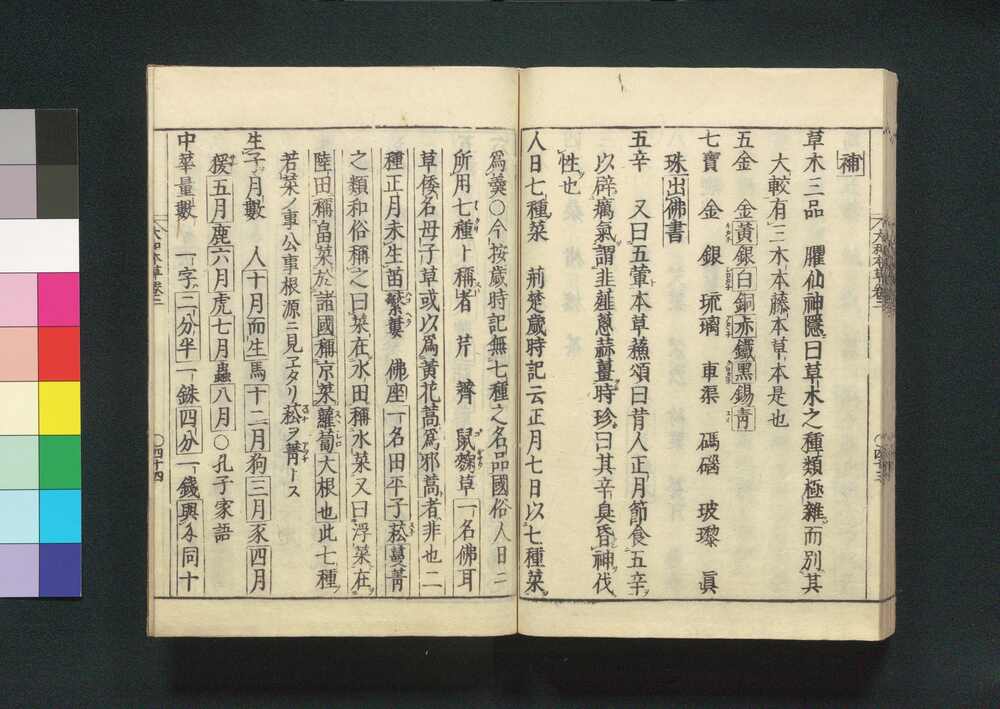 補
草木三品 臞仙神隱曰草木之種類極雜而別其
大較有三木本藤本草本是也
五金 金黃銀白銅赤鐵黑錫靑
七寶 金 銀 琉璃 車渠 碼碯 玻瓈 眞
珠出佛書
五辛 又曰五葷本草蘓頌曰昔人正月節食五辛
以辟癘氣謂韭薤葱蒜薑時珍曰其辛臭昏神伐
性也
人日七種菜 荊楚歲時記云正月七日以七種菜
爲羹○今按歲時記無七種之名品國俗人日ニ
所用七種ト稱スル者 芹 薺 鼠麴草一名佛耳
草倭名母子草或以爲黃花蒿爲邪蒿者非也二
種正月未生苗蘩蔞 佛座一名田平子菘蔓菁
之類和俗稱之曰菜在水田稱水菜又曰浮菜在
陸田稱畠菜於諸國稱京菜蘿蔔大根也此七種
若菜ノ事公事根源ニ見エタリ菘ヲ菁トス
生子月數 人十月而生馬十二月狗三月豕四月
猨五月鹿六月虎七月蟲八月○孔子家語
中華量數 一字二分半一銖四分一錢與分同十
大和本草卷二
○四十四